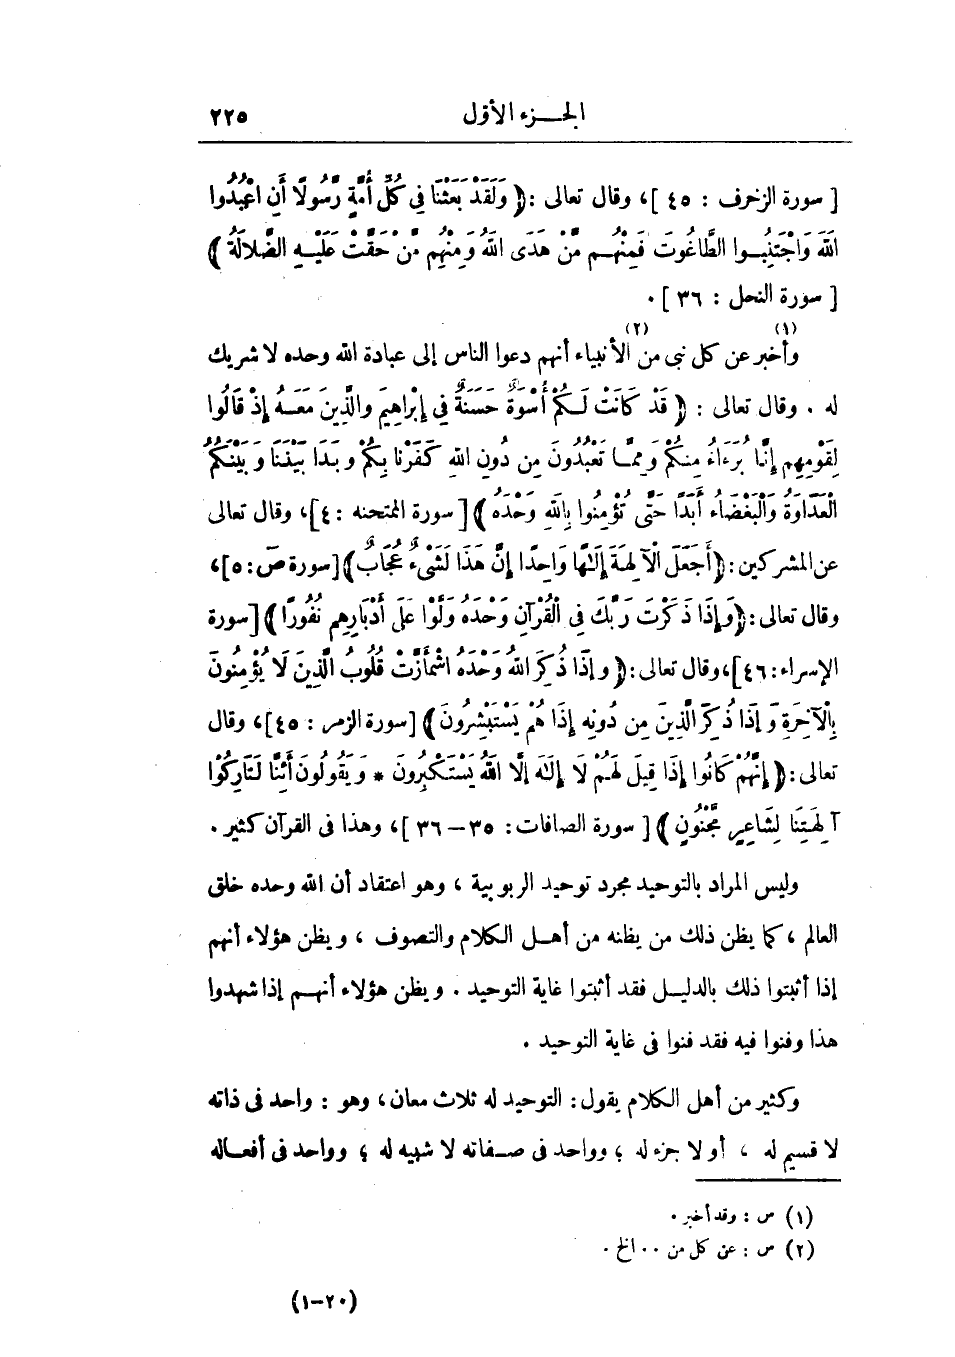 الجـــزء الأول ٢٢٥
[ سورة الزخرف : ٤٥ ]، وقال تعالى :﴿ وَلَقَدْ بَعَثْنَا فِي كُلِّ أُمَّةٍ رَّسُولًا أَنِ اعْبُدُوا
اللّٰهَ وَاجْتَنِبُـوا الطَّاغُوتَ فَمِنْهُـم مَّنْ هَدَى اللّٰهُ وَمِنْهُم مَّنْ حَقَّتْ عَلَيْـهِ الضَّلالَةُ ﴾
[ سورة النحل : ٣٦ ] .
وأخبر (١) عن كل نبى من (٢) الأنبياء أنهم دعوا الناس إلى عبادة الله وحده لا شريك
له . وقال تعالى : ﴿ قَدْ كَانَتْ لَـكُمْ أُسْوَةٌ حَسَنَةٌ فِي إِبْرَاهِيمَ والَّذِينَ مَعَـهُ إِذْ قَالُوا
لِقَوْمِهِم إِنَّا بُرَءَاءُ مِنكُمْ وَمِمَّـا تَعْبُدُونَ مِن دُونِ اللّٰهِ كَفَرْنا بِكُمْ وبَدَا بَيْنَنا وَبَيْنَـكُمُ
الْعَدَاوَةُ وَالْبَغْضَاءُ أَبَدًا حَتَّى تُؤْمِنُوا بِاللّٰهِ وَحْدَهُ ﴾[ سورة الممتحنه :٤]، وقال تعالى
عن المشركين:﴿أَجَعَلَ الْآلِهَةَ إِلَـٰهًا وَاحِدًا إِنَّ هَذَا لَشَيْءٌ عُجَابٌ﴾[سورة صٓ:٥]،
وقال تعالى:﴿وَإِذَا ذَكَرْتَ رَبَّكَ فِي الْقُرْآنِ وَحْدَهُ وَلَّوْا عَلَى أَدْبَارِهِم نُفُورًا ﴾[سورة
الإسراء:٤٦]،وقال تعالى:﴿ وإِذَا ذُكِرَ اللّٰهُ وَحْدَهُ اشْمَأَزَّتْ قُلُوبُ الَّذِينَ لَا يُؤْمِنُونَ
بِالْآخِرَةِ وَإذَا ذُكِرَ الَّذِينَ مِن دُونِهِ إِذَا هُمْ يَسْتَبْشِرُونَ﴾[سورة الزمر : ٤٥]، وقال
تعالى:﴿ إِنَّهُمْ كَانُوا إِذَا قِيلَ لَهُمْ لَا إِلَـٰهَ إلَّا اللّٰهُ يَسْتَـكْبِرُونَ * وَيَقُولُونَ أَئِنَّا لَتَارِكُوْا
آلِهَتِنَا لِشَاعِرٍ مَّجْنُونٍ ﴾[ سورة الصافات: ٣٥ – ٣٦ ]، وهذا فى القرآن كثير .
وليس المراد بالتوحيد مجرد توحيد الربوبية ، وهو اعتقاد أن الله وحده خلق
العالم ، كما يظن ذلك من يظنه من أهـل الكلام والتصوف ، ويظن هؤلاء أنهم
إذا أثبتوا ذلك بالدليـل فقد أثبتوا غاية التوحيد . ويظن هؤلاء أنهـم إذا شهدوا
هذا وفنوا فيه فقد فنوا فى غاية التوحيد .
وكثير من أهل الكلام يقول : التوحيد له ثلاث معان ، وهو : واحد فى ذاته
لا قسيم له ، أو لا جزء له ؛ وواحد فى صـفاته لا شبيه له ؛ وواحد فى أفعـاله
(١) ص : وقد أخبر .
(٢) ص : عن كل من ٠٠ الخ .
(٢٠–١)